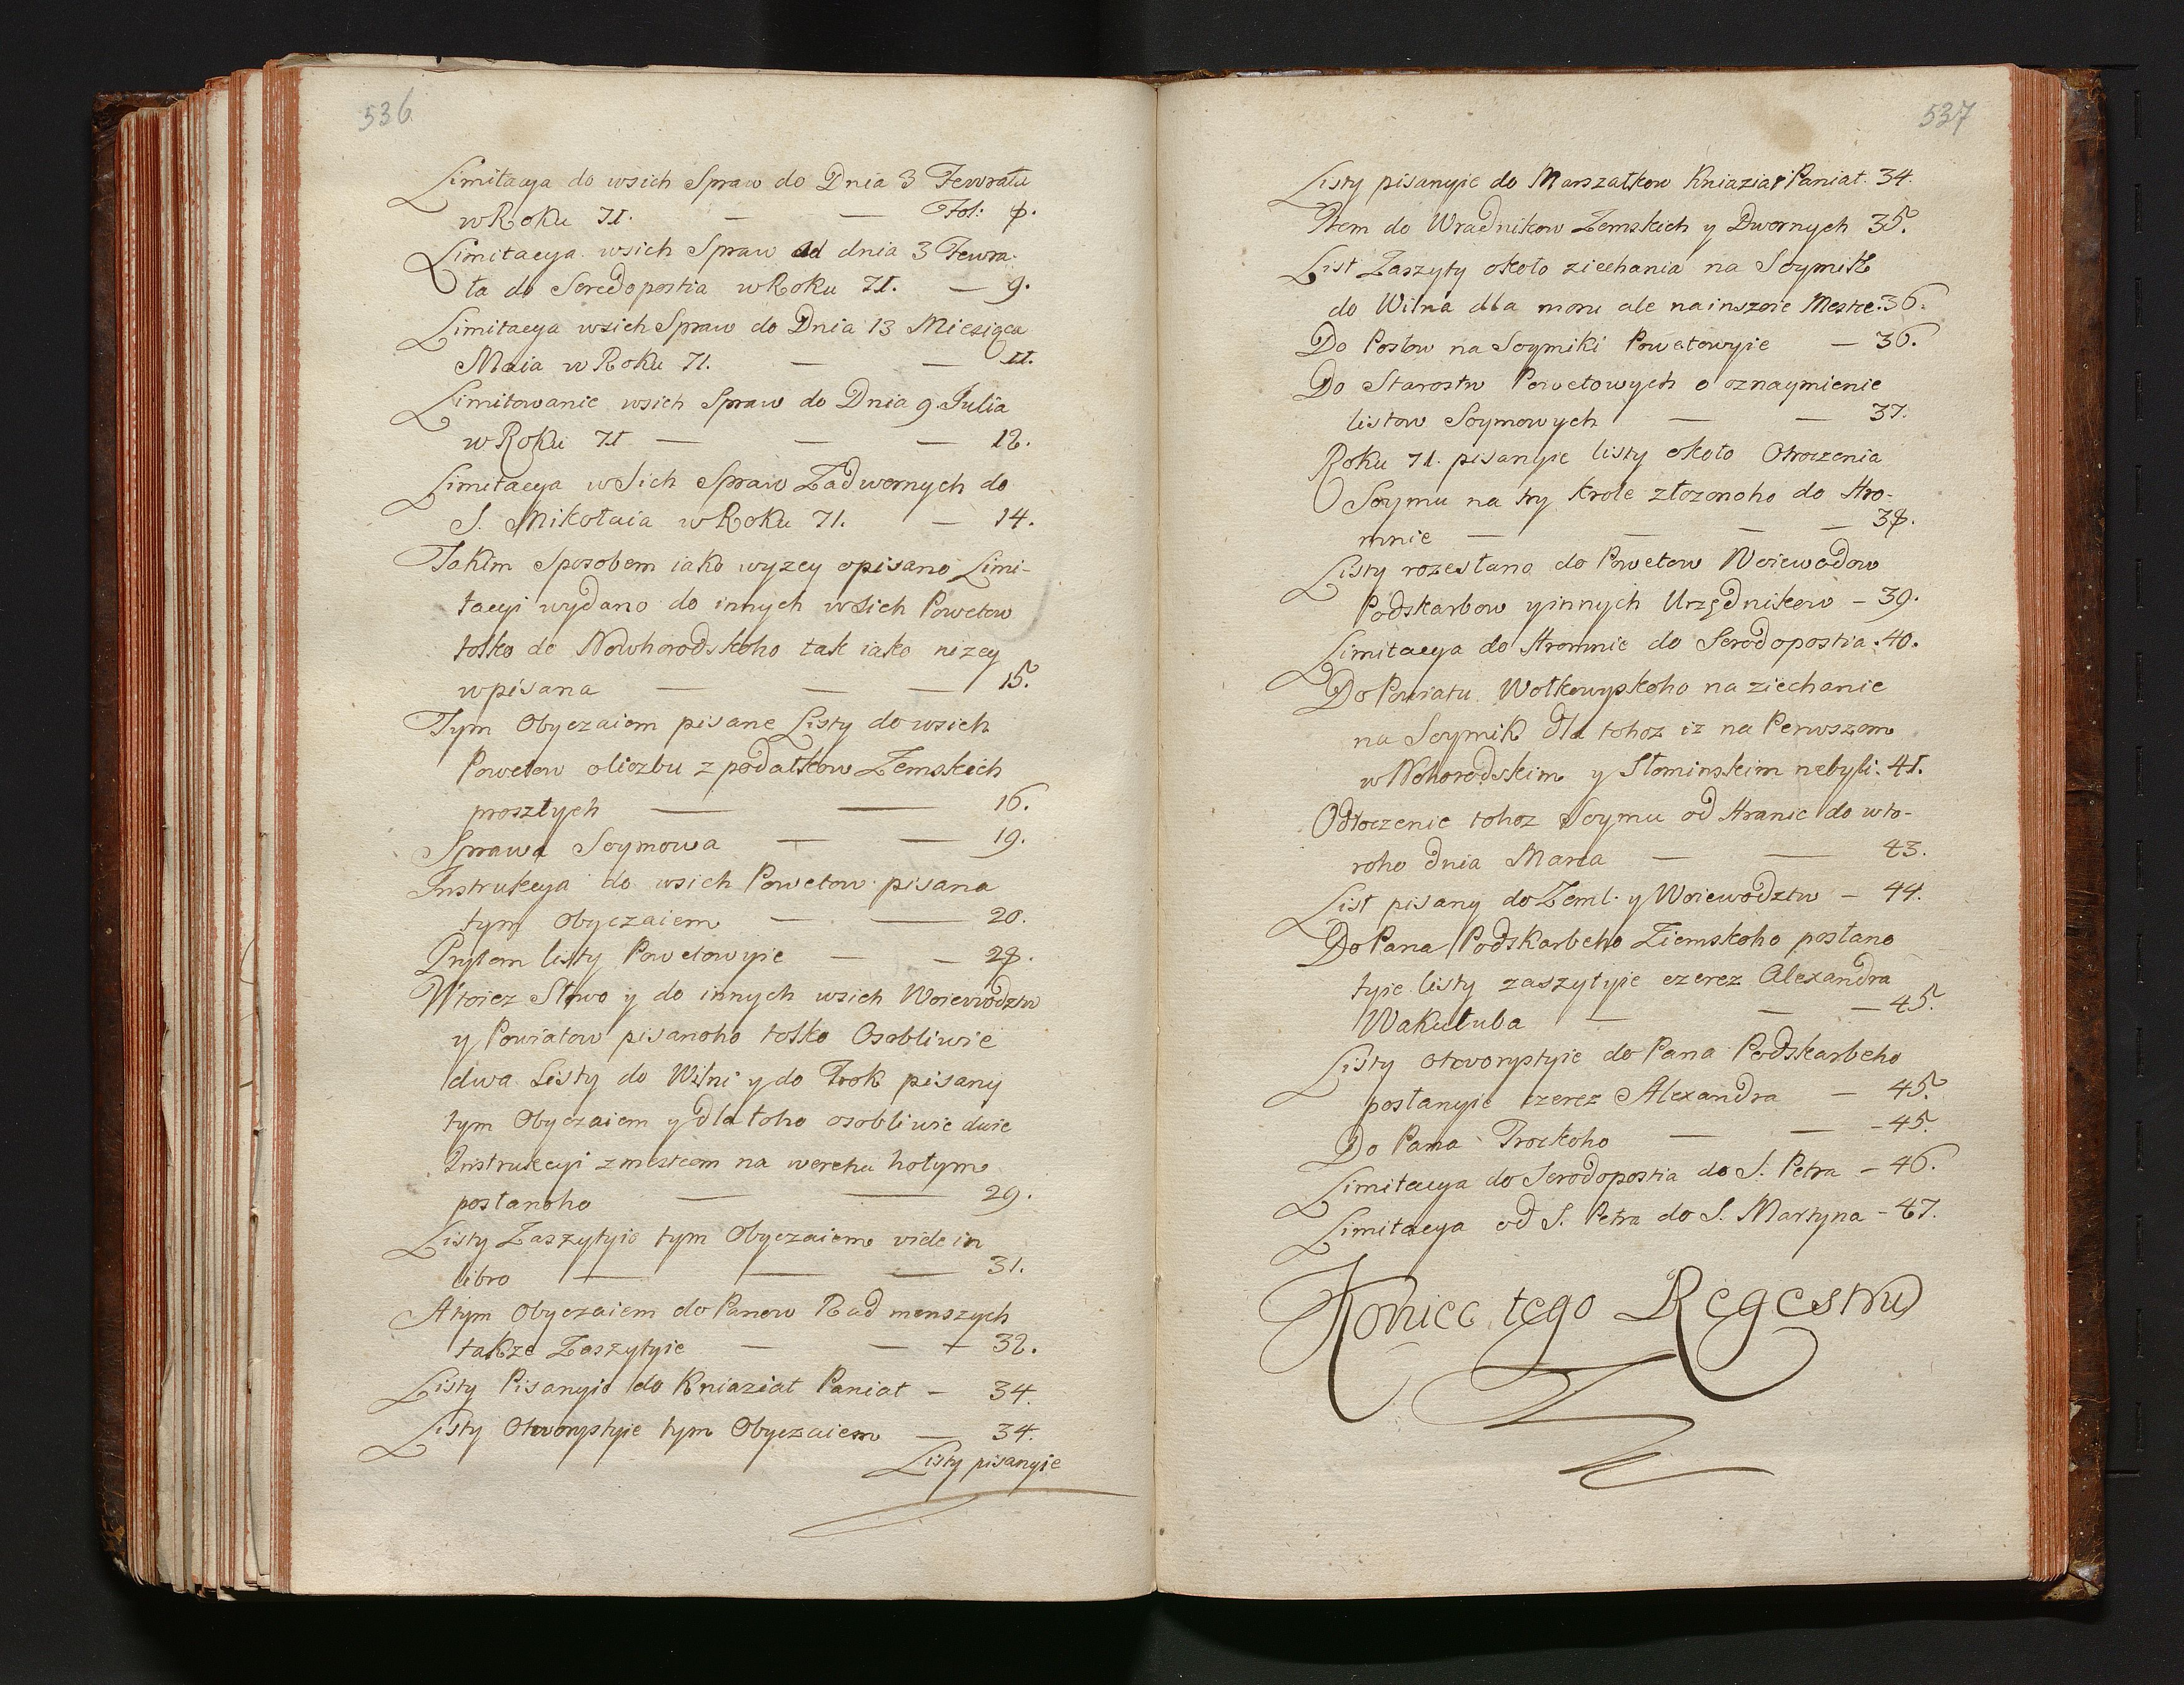 536.
Limitacya do wsich Spraw do Dnia 3 Fewrala
w Roku 71. — — Fol: 8.
Limitacya wsich Spraw ad dnia 3 Fewra-
ła do Seredopostia w Roku 71. — 9.
Limitacya wsich Spraw do Dnia 13 Miesiąca
Maia w Roku 71. — — 11.
Limitowanie wsich Spraw do Dnia 9. Julia
w Roku 71 — — — 12.
Limitacya wsich Spraw Zadwornych do
S. Mikołaia w Roku 71. — 14.
Takim Sposobem iako wyzey opisano Limi-
tacyi wydano do innych wsich Powetow
tolko do Nowhorodskoho tak iako nizey
wpisana — — — 15.
Tym Obyczaiem pisane Listy do wsich
Powetow o liczbu z podatkow Zemskich
proszłych — — 16.
Sprawa Soymowa — — 19.
Instrukcya do wsich Powetow pisana
tym Obyczaiem — — 20.
Prytem listy Powetowyie — — 28.
Wtoiez Słowo y do innych wsich Woiewodztw
y Powiatow pisanoho tolko Osobliwie
dwa Listy do Wilni y do Trok pisany
tym Obyczaiem y dla toho osobliwie dwie
Instrukcyi z mestcom na werchu hołym
posłanoho — — 29.
Listy Zaszytyie tym Obyczaiem vide in
libro — — — 31.
A tym Obyczaiem do Panow Rad menszych
takze Zaszytyie — — — 32.
Listy Pisanyie do Kniaziat Paniat — 34.
Listy Otworystyie tym Obyczaiem — 34.
Listy pisanyie
537
Listy pisanyie do Marszałkow Kniaziat Paniat. 34.
Item do Wradnikow Zemskich y Dwornych 35.
List Zaszyty około ziechania na Soymik
do Wilna dla moru ale na inszoie Mestce. 36.
Do Posłow na Soymiki Powetowyie — 36.
Do Starostw Powetowych o oznaymienie
listow Soymowych — — 37.
Roku 71. pisanyie listy około Otroczenia
Soymu na try Krole złozonoho do Hro-
mnic — — — — 38.
Listy rozesłano do Powetow Woiewodow
Podskarbow y innych Urzędnikow — 39.
Limitacya do Hromnic do Serodopostia. 40.
Do Powiatu Wołkowyskoho na ziechanie
na Soymik dla tohoz iz na Perwszom
w Nohorodskim y Słominskim nebyli. 41.
Odłoczenie tohoz Soymu od Hranic do wto-
roho dnia Marca — — 43.
List pisany do Zeml. y Woiewodztw — 44.
Do Pana Podskarbeho Ziemskoho posłano
tyie listy zaszytyie czerez Alexandra
Wakułuba — — — 45.
Listy otworystyie do Pana Podskarbeho
posłanyie czerez Alexandra — 45.
Do Pana Trockoho — — 45.
Limitacya do Serodopostia do S. Petra — 46.
Limitacya od S. Petra do S. Martyna — 47.
Koniec tego Regestru